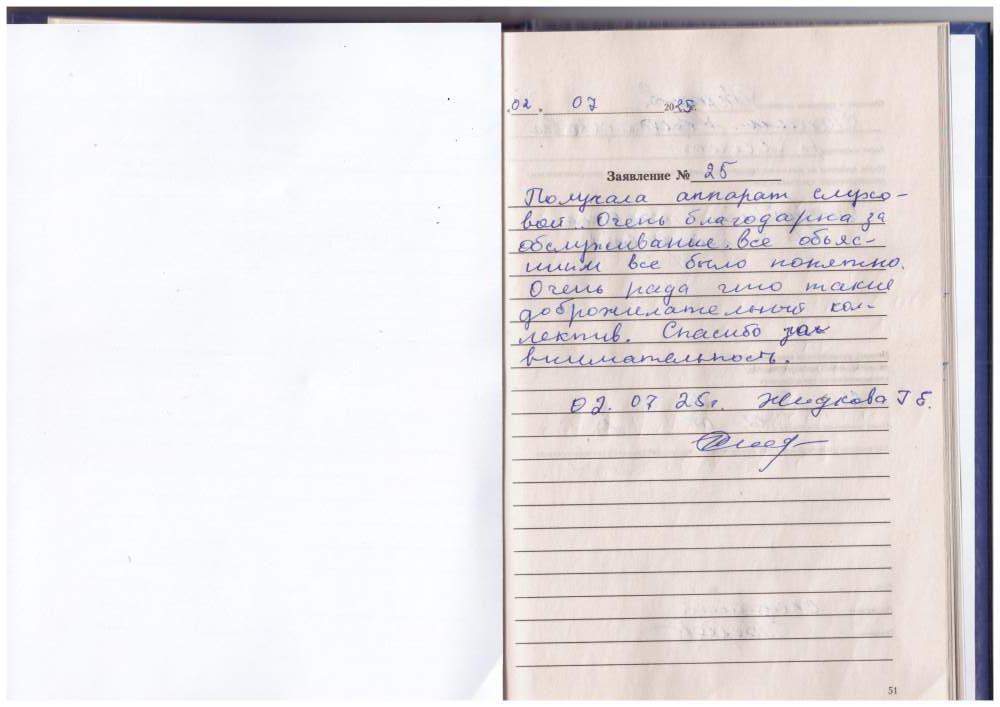 02. 07 2025г.
Заявление № 25
Получала аппарат слухо-
вой. Очень благодарна за
обслуживание. Все объяс-
нили все было понятно.
Очень рада что такие
доброжилательный кол-
лектив. Спасибо за
внимательность.
02. 07 25г. Жидкова Г Б.
51